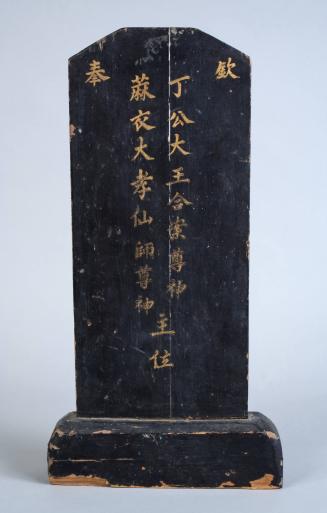 欽奉
丁公大王合案尊神
蔴衣大孝仙師尊神
主位